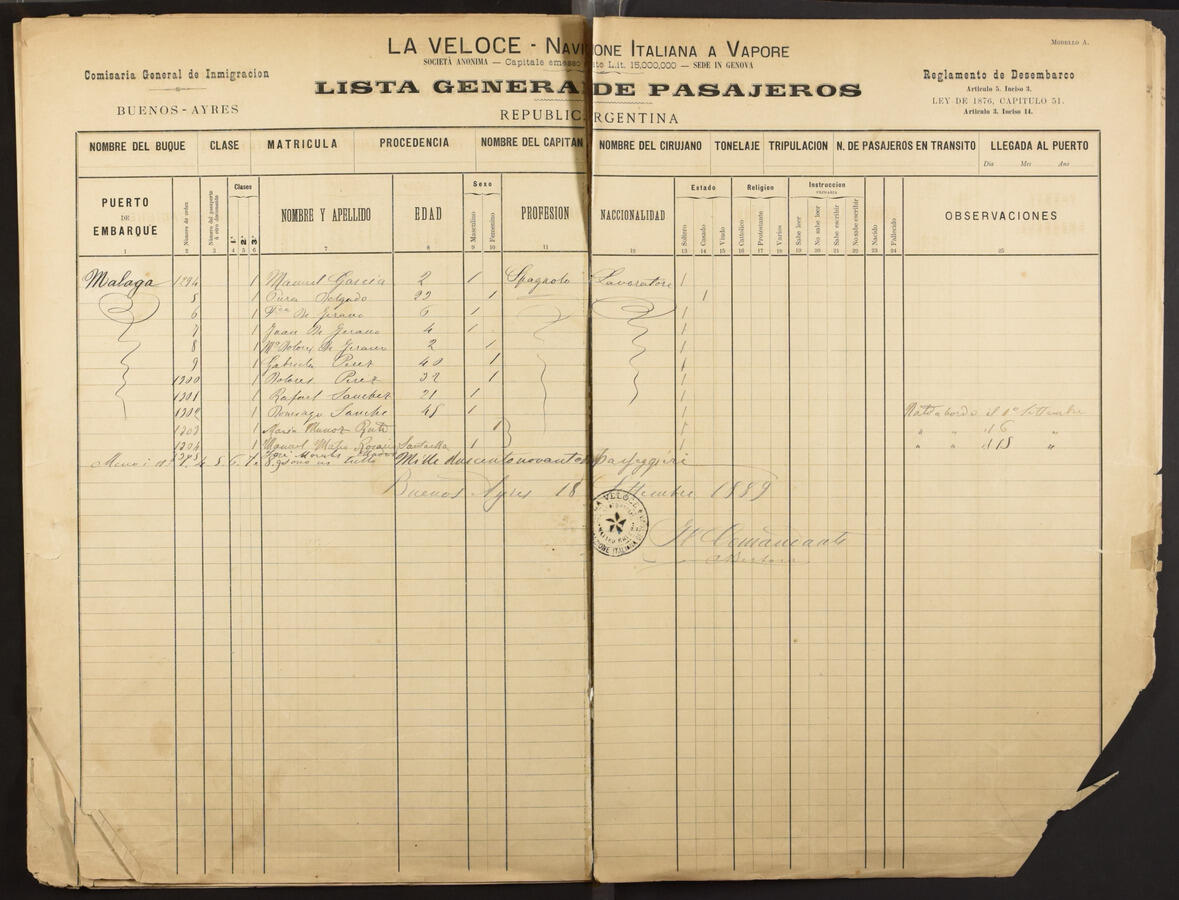 LA VELOCE - Navi one Italiana a Vapore
SOCIETÀ ANONIMA — Capitale emesso L.it. 15,000,000 — SEDE IN GENOVA
Modello A.
Comisaria General de Inmigracion
BUENOS-AYRES
LISTA GENERA DE PASAJEROS
REPUBLIC RGENTINA
Reglamento de Desembarco
Articulo 5. Inciso 3.
LEY DE 1876, CAPITULO 51.
Articulo 3. Inciso 14.
NOMBRE DEL BUQUE CLASE MATRICULA PROCEDENCIA NOMBRE DEL CAPITAN NOMBRE DEL CIRUJANO TONELAJE TRIPULACION N. DE PASAJEROS EN TRANSITO LLEGADA AL PUERTO
Dia Mes Ano
PUERTO DE EMBARQUE Número de orden Número del pasaporte ú otro documento Clases 1.ª 2.ª 3.ª NOMBRE Y APELLIDO EDAD Sexo Masculino Femenino PROFESION NACCIONALIDAD Estado Soltero Casado Viudo Religion Catolico Protestante Varios Instruccion PRIMARIA Sabe leer No sabe leer Sabe escribir No sabe escribir Nacido Fallecido OBSERVACIONES
1 2 3 4 5 6 7 8 9 10 11 12 13 14 15 16 17 18 19 20 21 22 23 24 25
Malaga 1294 1 Manuel Garcia 2 1 Spagnolo Lavoratore 1
5 1 Delgado 22 1 1
6 1 De 6 1 1
7 1 Juan De 4 1 1
8 1 Mª Dolores De 2 1 1
9 1 Gabriela Perez 40 1 1
1300 1 Dolores Perez 32 1 1
1301 1 Rafael Sanchez 21 1 1
1302 1 Domingo Sanche 45 1 1 Nato a bordo il 1º Settembre
1303 1 Maria Munoz Ruth 1 1 " " il 6 "
1304 1 Manuel Maria Rosario 1 1 " " il 15 "
1305 José Morales
sono in tutto Mille duecentonovanta passeggieri
Buenos Ayres 18 Settembre 1889
LA VELOCE
Il Comandante